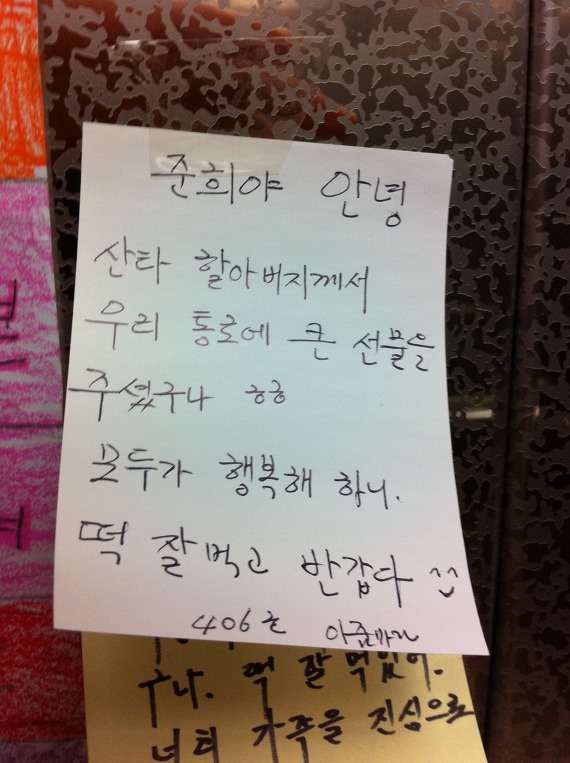 준희야 안녕
산타 할아버지께서
우리 통로에 큰 선물을
주셨구나 ㅎㅎ
모두가 행복해 하니.
떡 잘먹고 반갑다 ^^
406호 아줌마가
구나. 떡 잘 먹었어.
너희 가족을 진심으로
본